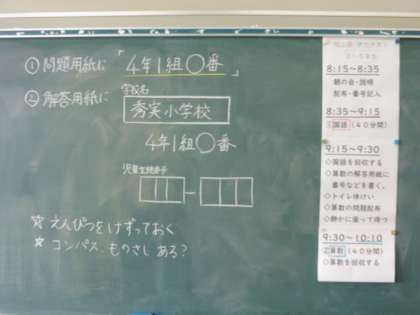 ① 問題用紙に 「4年1組○番
② 解答用紙に 学校名
秀実小学校
4年1組○番
☆ えんぴつをけずっておく
★ コンパス、ものさし ある？
8:15～8:35
朝の会・説明
配布・番号記入
8:35～9:15
①国語（40分間）
9:15～9:30
◇国語を回収する
◇算数の解答用紙に
番号などを書く。
◇トイレ休けい
◇算数の問題配布
◇静かに座って待つ
9:30～10:10
②算数（40分間）
◇算数を回収する